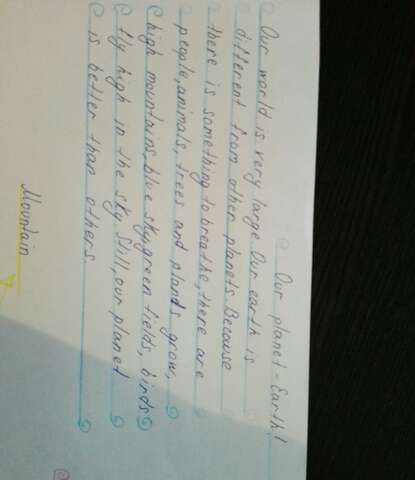 Our planet-Earth!
Our world is very large. Our earth is
different from other planets. Because
there is something to breathe, there are
people, animals, trees and plands grow,
high mountains, blue sky, green fields, birds
fly high in the sky. Still, our planet
is better than others.
Mountain